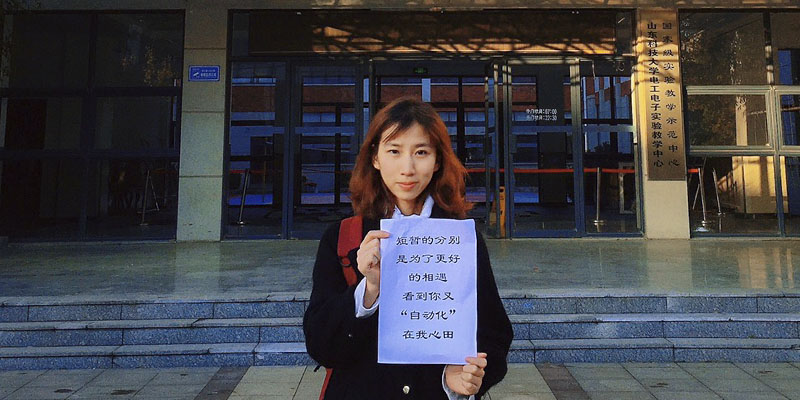 国家级实验教学示范中心
山东科技大学电工电子实验教学中心
短暂的分别
是为了更好
的相遇
看到你又
“自动化”
在我心田